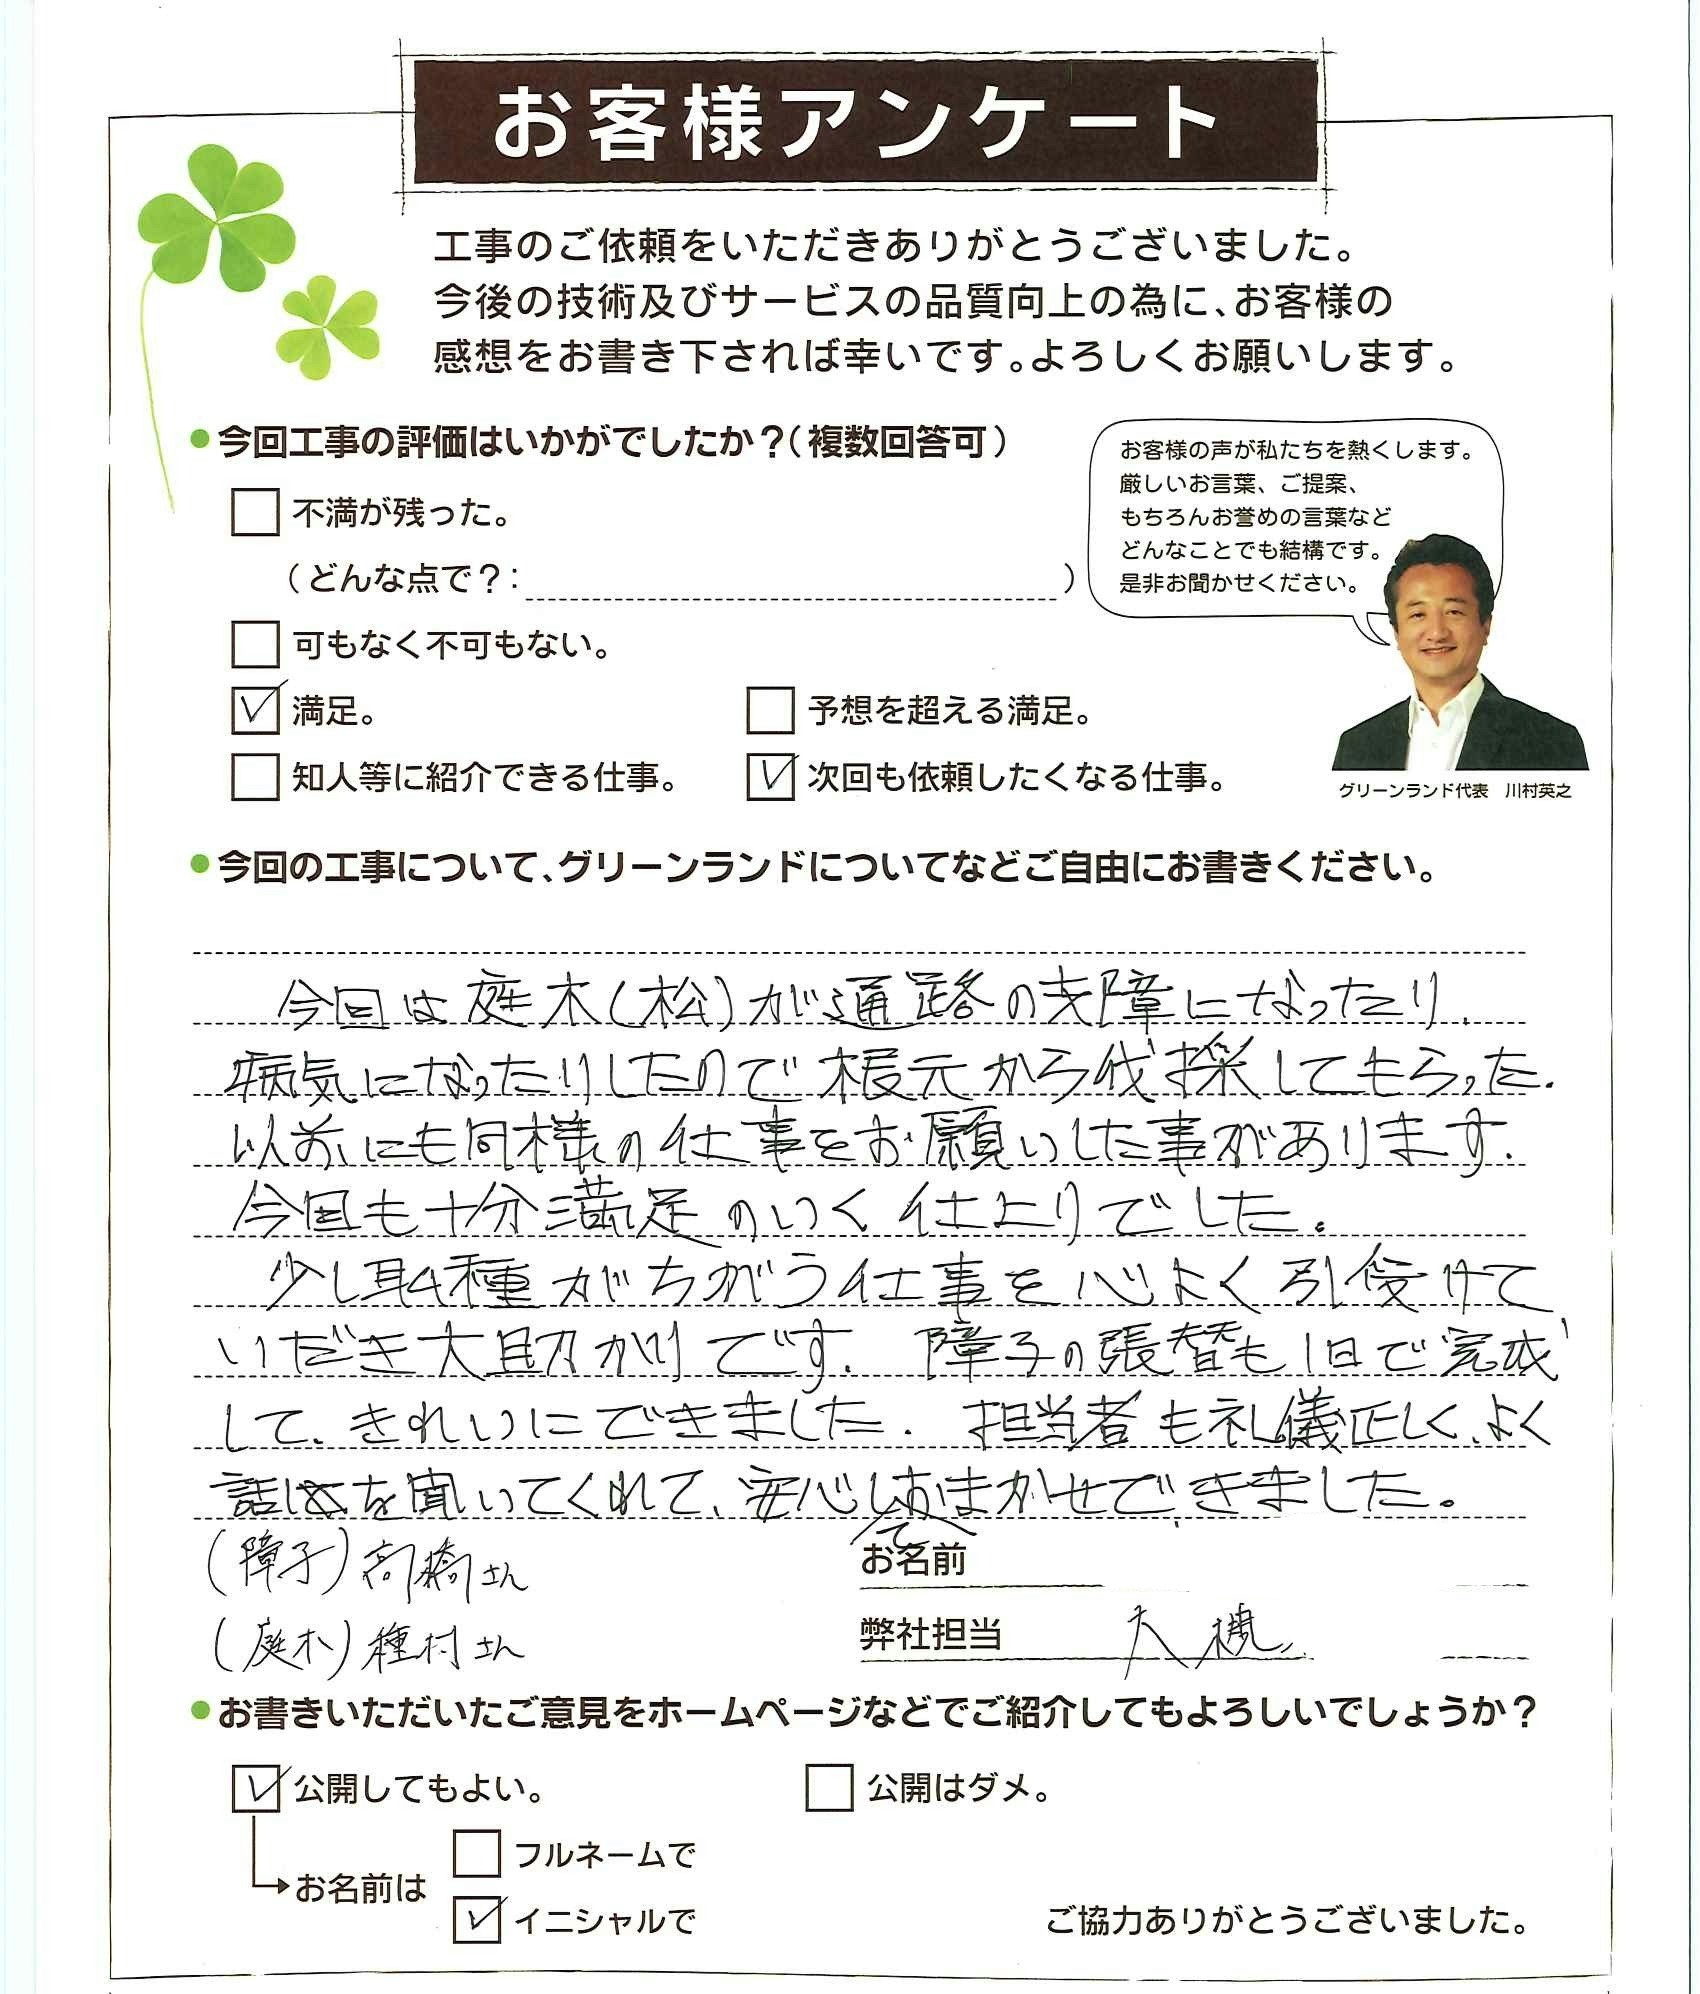 お客様アンケート
工事のご依頼をいただきありがとうございました。
今後の技術及びサービスの品質向上の為に、お客様の
感想をお書き下されば幸いです。よろしくお願いします。
今回工事の評価はいかがでしたか？（複数回答可）
お客様の声が私たちを熱くします。
厳しいお言葉、ご提案、
もちろんお誉めの言葉など
どんなことでも結構です。
是非お聞かせください。
不満が残った。
（どんな点で？：　）
可もなく不可もない。
満足。　予想を超える満足。
知人等に紹介できる仕事。　次回も依頼したくなる仕事。
グリーンランド代表　川村英之
今回の工事について、グリーンランドについてなどご自由にお書きください。
今回は庭木（松）が通路の支障になったり、
病気になったりしたので根元から伐採してもらった.
以前にも同様の仕事をお願いした事があります.
今回も十分満足のいく仕上りでした。
少し職種がちがう仕事を心よく引受けて
いただき大助かりです. 障子の張替も1日で完成
して、きれいにできました. 担当者も礼儀正しく、よく
話を聞いてくれて、安心しておまかせできました。
（障子）高橋さん
（庭木）種村さん
お名前
弊社担当　大槻
お書きいただいたご意見をホームページなどでご紹介してもよろしいでしょうか？
公開してもよい。　公開はダメ。
お名前は
フルネームで
イニシャルで
ご協力ありがとうございました。